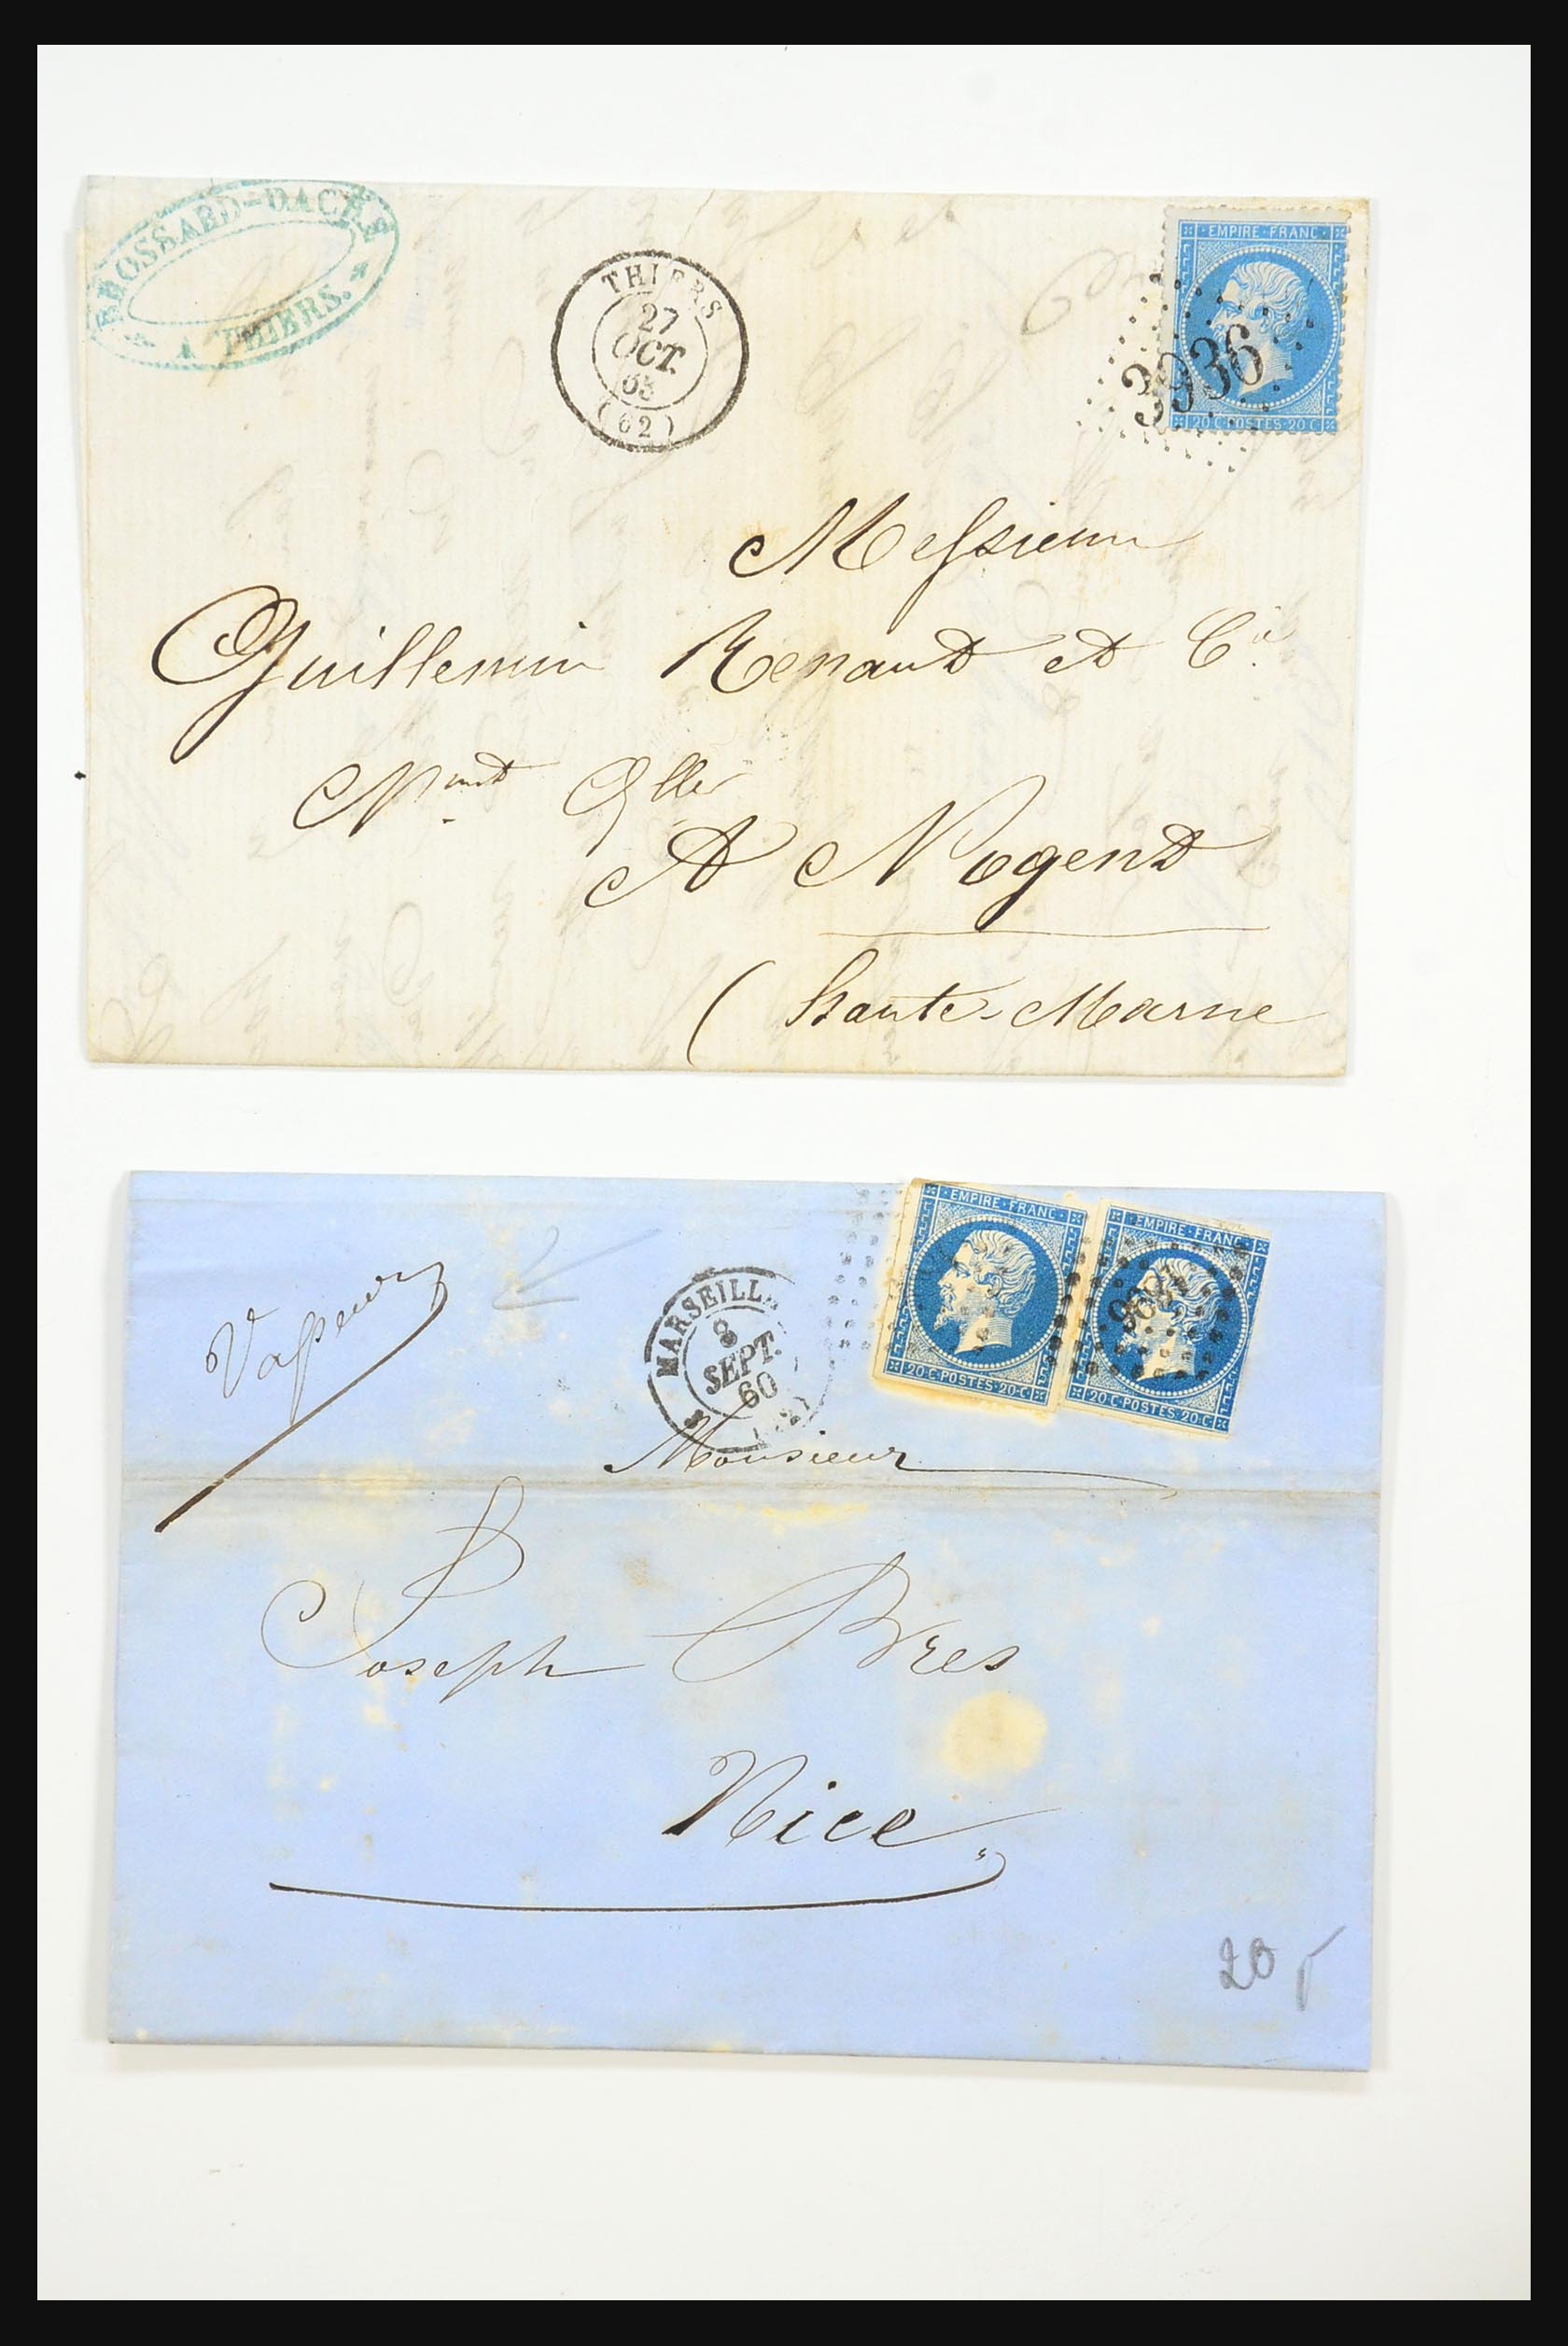 BROSSARD-DACHE
A THIERS.
THIERS
27
OCT.
63
(62)
EMPIRE FRANC
3936
20 C POSTES 20 C
Messieurs
Guillemin Renaud et Cie
A Nogent
(Haute-Marne
Vapeur
MARSEILLE
8
SEPT.
60
EMPIRE FRANC
20 C POSTES 20 C
EMPIRE FRANC
1896
20 C POSTES 20 C
Monsieur
Joseph Bres
Nice
20